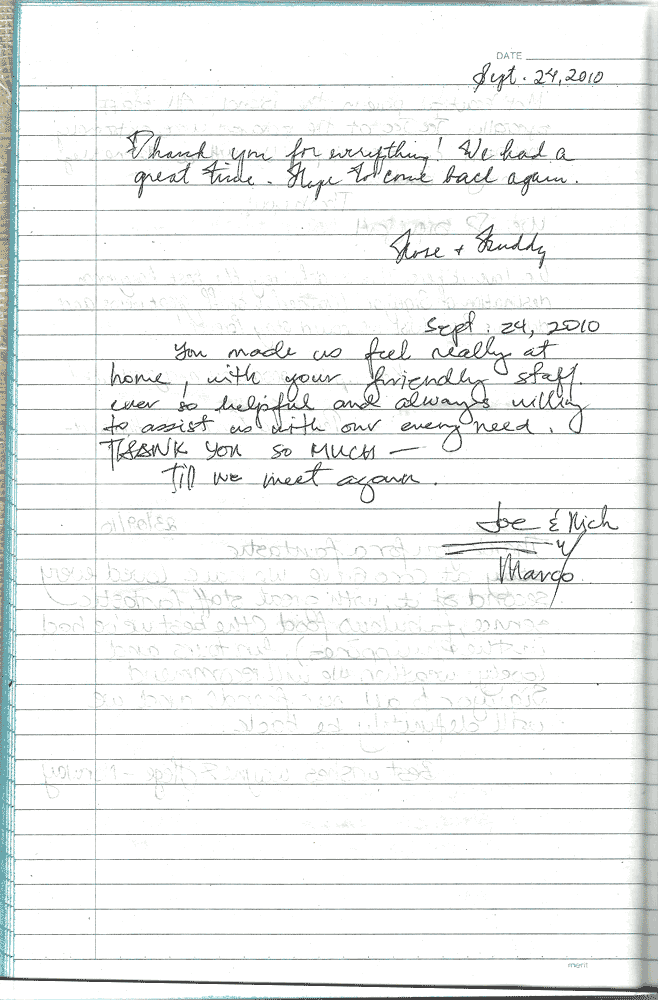 DATE
Sept. 24, 2010
Thank you for everything! We had a
great time. Hope to come back again.
Rose + Freddy
Sept. 24, 2010
You made us feel really at
home, with your friendly staff.
ever so helpful and always willing
to assist us with our every need.
THANK YOU SO MUCH —
Till we meet again.
Joe & Nich
Margo
merit